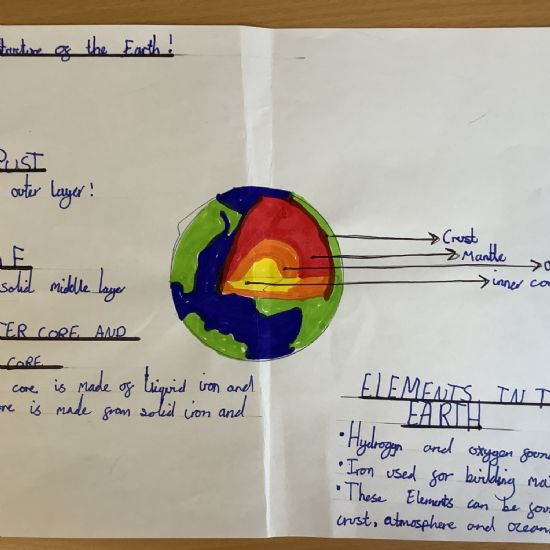 structure of the Earth!
CRUST
outer layer!
solid middle layer
TER CORE AND
CORE
core is made of liquid iron and
ore is made from solid iron and
Crust
Mantle
inner cor
ELEMENTS IN T
EARTH
• Hydrogyn and oxygen foun
• Iron used for building ma
• These Elements can be fou
crust, atmosphere and ocean